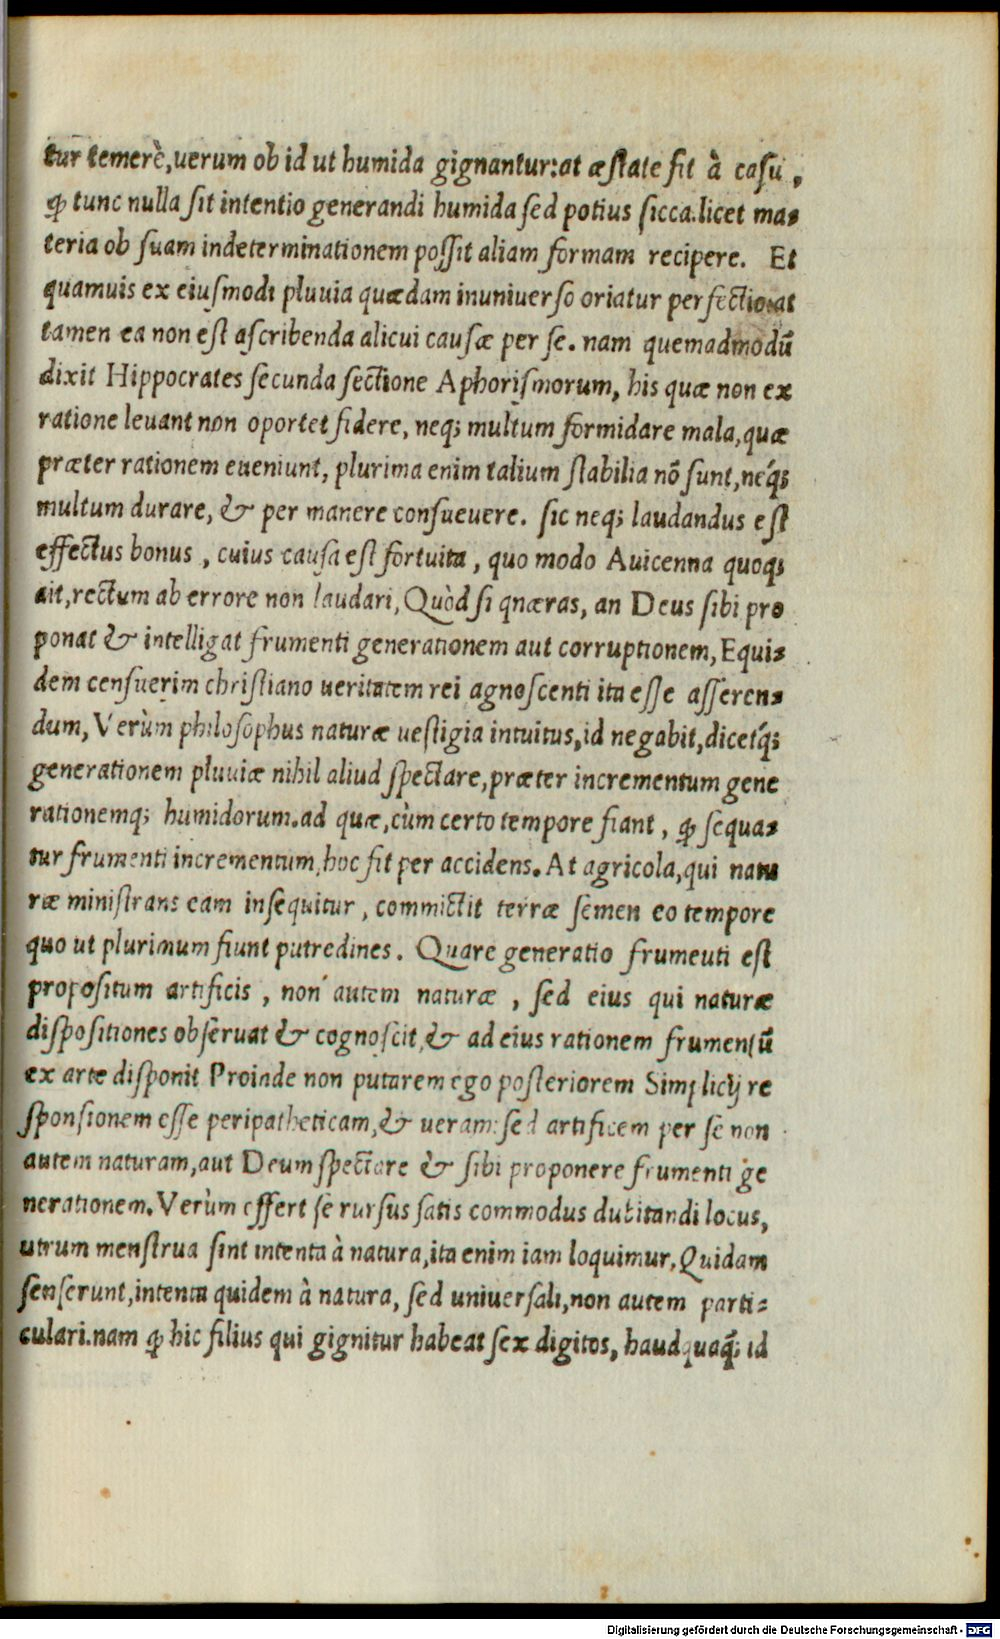 tur temerè, uerum ob id ut humida gignantur: at æstate fit à casu,
ꝙ tunc nulla sit intentio generandi humida sed potius sicca. licet ma⸗
teria ob suam indeterminationem possit aliam formam recipere. Et
quamuis ex eiusmodi pluuia quædam inuniuerso oriatur perfectio. at
tamen ea non est ascribenda alicui causæ per se. nam quemadmodū
dixit Hippocrates secunda sectione Aphorismorum, his quæ non ex
ratione leuant non oportet fidere, neq; multum formidare mala, quæ
præter rationem eueniunt, plurima enim talium stabilia nō sunt, neq́;
multum durare, & per manere consueuere. sic neq; laudandus est
effectus bonus, cuius causa est fortuita, quo modo Auicenna quoq;
ait, rectum ab errore non laudari, Quòd si qnæras, an Deus sibi pro
ponat & intelligat frumenti generationem aut corruptionem, Equi⸗
dem censuerim christiano ueritatem rei agnoscenti ita esse asseren⸗
dum, Verùm philosophus naturæ uestigia intuitus, id negabit, dicetq́;
generationem pluuiæ nihil aliud spectare, præter incrementum gene
rationemq; humidorum. ad quæ, cùm certo tempore fiant, ꝙ sequa⸗
tur frumenti incrementum, hoc fit per accidens. At agricola, qui natu
ræ ministrans eam insequitur, commictit terræ semen eo tempore
quo ut plurimum fiunt putredines. Quare generatio frumeuti est
propositum artificis, non autem naturæ, sed eius qui naturæ
dispositiones obseruat & cognoscit, & ad eius rationem frumentū
ex arte disponit Proinde non putarem ego posteriorem Simplicij re
sponsionem esse peripatheticam, & ueram: sed artificem per se non
autem naturam, aut Deum spectare & sibi proponere frumenti ge
nerationem. Verùm offert se rursus satis commodus dubitandi locus,
utrum menstrua sint intenta à natura, ita enim iam loquimur, Quidam
senserunt, intenta quidem à natura, sed uniuersali, non autem parti⸗
culari. nam ꝙ hic filius qui gignitur habeat sex digitos, haudquaq̃; id
Digitalisierung gefördert durch die Deutsche Forschungsgemeinschaft - DFG